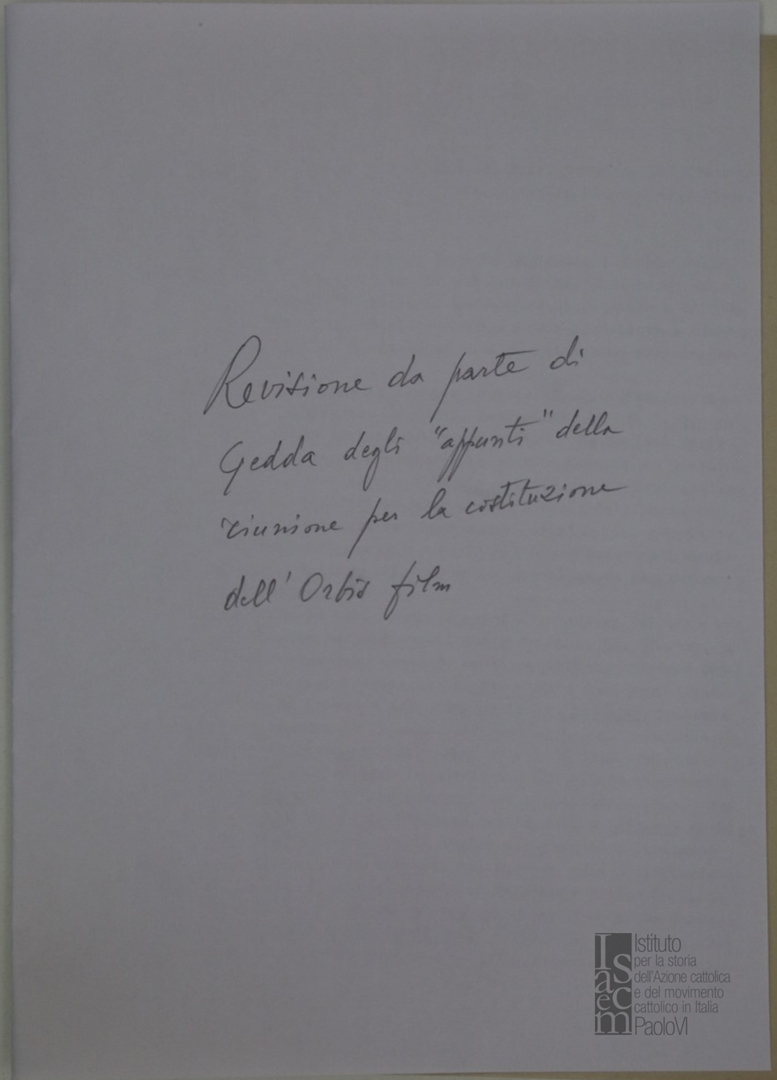 Revisione da parte di
Gedda degli "appunti" della
riunione per la costituzione
dell'Orbis film
Isacem
Istituto
per la storia
dell'Azione cattolica
e del movimento
cattolico in Italia
PaoloVI